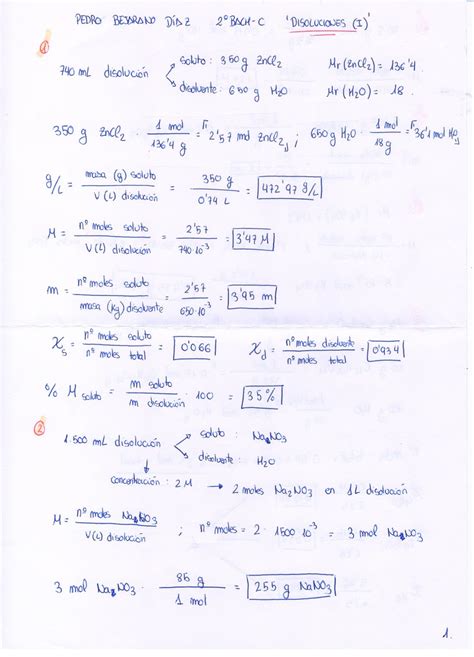 PEDRO BEJARANO DÍAZ 2º BACH-C 'DISOLUCIONES (I)'
1
740 mL disolución
soluto: 350 g ZnCl2
disolvente: 650 g H2O
Mr (ZnCl2) = 136'4
Mr (H2O) = 18
350 g ZnCl2 · 1 mol / 136'4 g = 2'57 mol ZnCl2 ; 650 g H2O · 1 mol / 18 g = 36'1 mol H2O
g/L = masa (g) soluto / V (L) disolución = 350 g / 0'74 L = 472'97 g/L
M = nº moles soluto / V (L) disolución = 2'57 / 740·10⁻³ = 3'47 M
m = nº moles soluto / masa (kg) disolvente = 2'57 / 650·10⁻³ = 3'95 m
χs = nº moles soluto / nº moles total = 0'066 χd = nº moles disolvente / nº moles total = 0'934
% M soluto = m soluto / m disolución · 100 = 35%
2
1.500 mL disolución
soluto: NaNO3
disolvente: H2O
concentración: 2 M → 2 moles Na2NO3 en 1L disolución
M = nº moles NaNO3 / V(L) disolución ; nº moles = 2 · 1500·10⁻³ = 3 mol NaNO3
3 mol NaNO3 · 85 g / 1 mol = 255 g NaNO3
1.